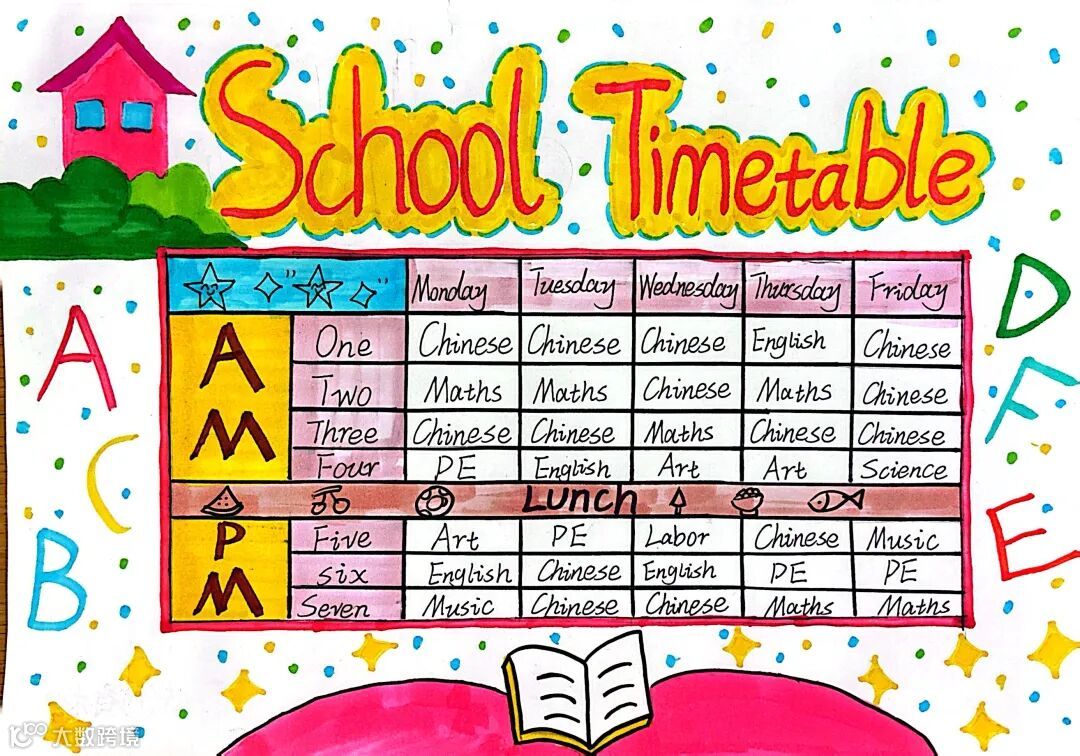 School Timetable
Monday Tuesday Wednesday Thursday Friday
AM
One Chinese Chinese Chinese English Chinese
Two Maths Maths Chinese Maths Chinese
Three Chinese Chinese Maths Chinese Chinese
Four PE English Art Art Science
Lunch
PM
Five Art PE Labor Chinese Music
six English Chinese English PE PE
Seven Music Chinese Chinese Maths Maths
A
C
B
D
F
E
大数跨境